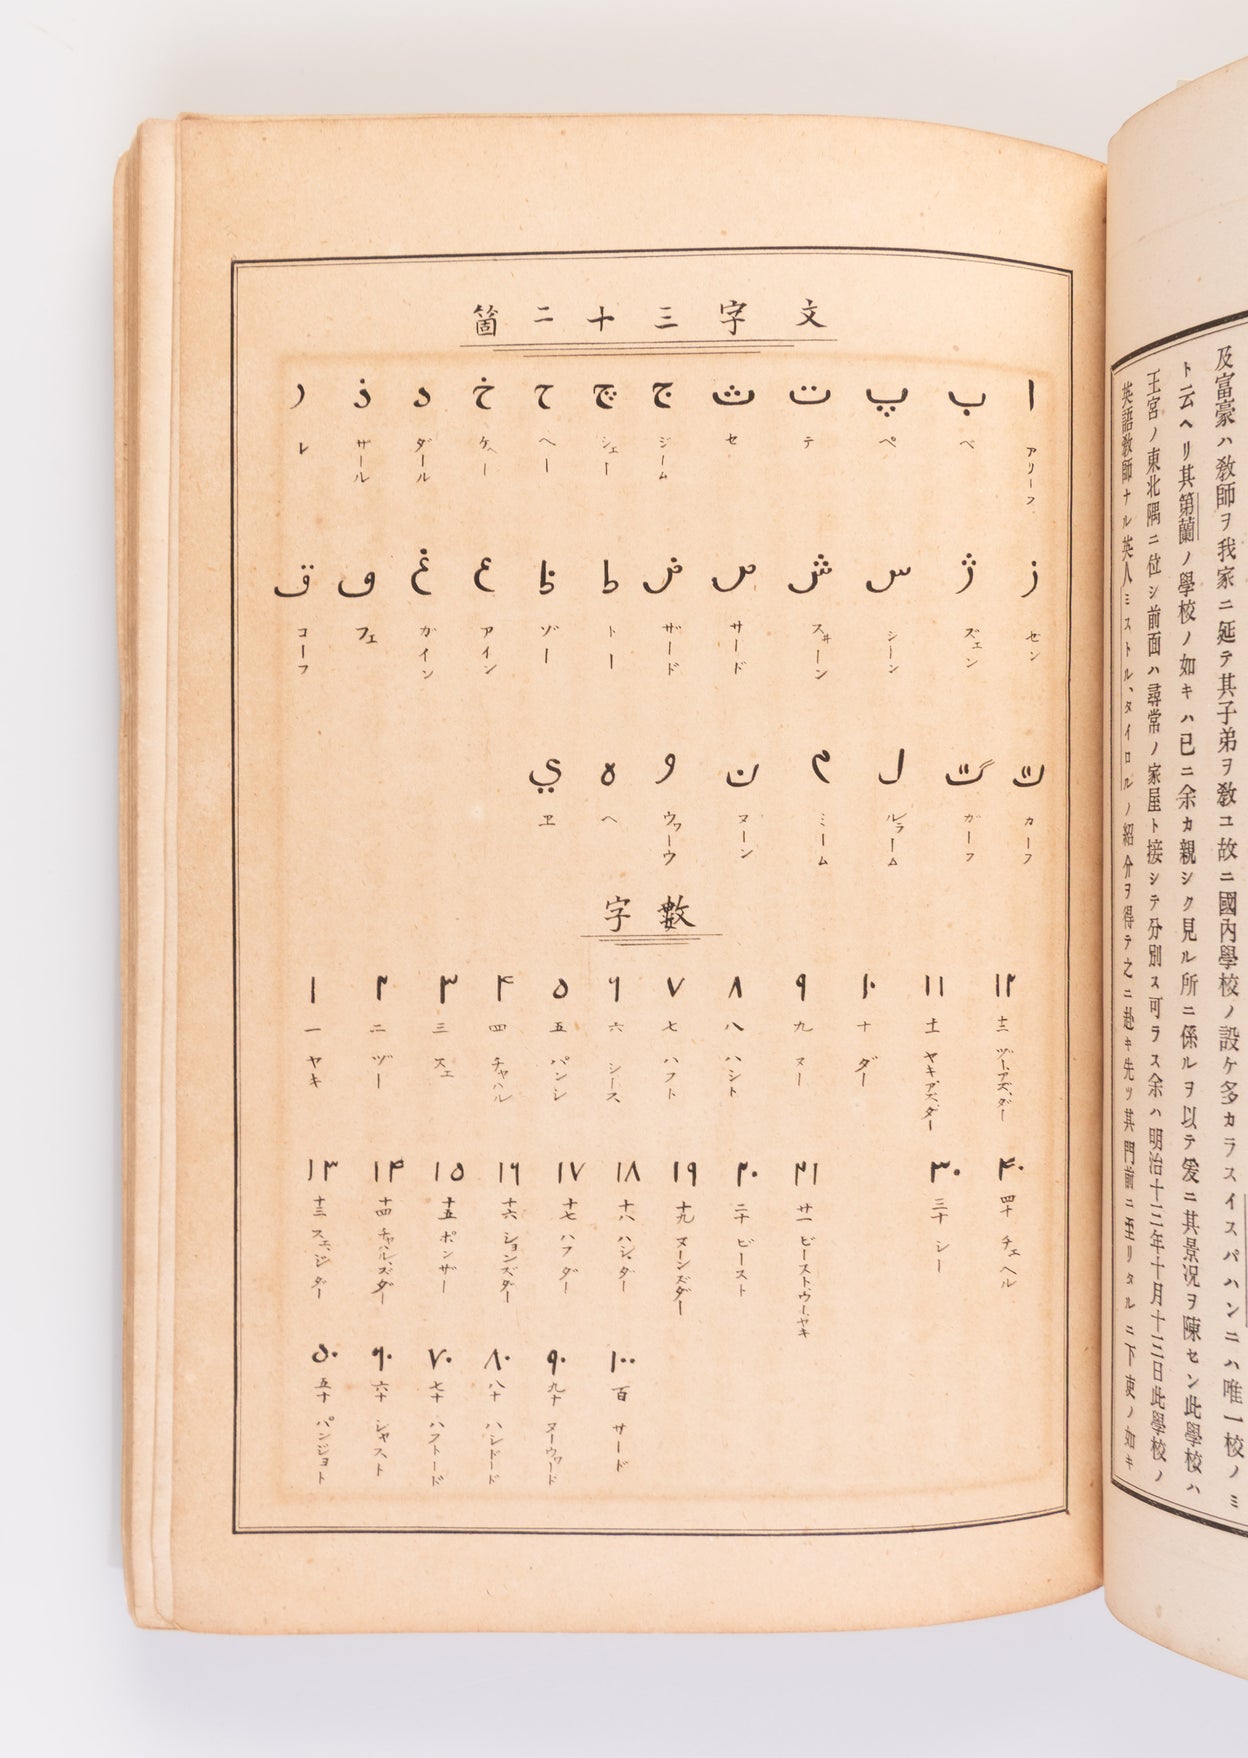 文字三十二箇
ا ب پ ت ث ج چ ح خ د ذ ر
アリーフ ベ ペ テ セ ジーム シェー ヘー ケヘー ダール ザール レ
ز ژ س ش ص ض ط ظ ع غ ف ق
ゼン ズェン シーン スヰーン サード ザード トー ゾー アイン ガイン フェ コーフ
ک گ ل م ن و ه ي
カーフ ガーフ ルラーム ミーム ヌーン ウワーウ ヘ ヱ
數字
۱ ۲ ۳ ۴ ۵ ۶ ۷ ۸ ۹ ۱۰ ۱۱ ۱۲
一 二 三 四 五 六 七 八 九 十 十一 十二
ヤキ ヅー スェ チャハル パンシ シース ハフト ハシト ヌー ダー ヤキ、アズ、ダー ヅー、アズ、ダー
۱۳ ۱۴ ۱۵ ۱۶ ۱۷ ۱۸ ۱۹ ۲۰ ۲۱ ۳۰ ۴۰
十三 十四 十五 十六 十七 十八 十九 二十 廿一 三十 四十
スェ、シダー チャハル、ズダー ポンザー ションズダー ハフダー ハシダー ヌーンズダー ビースト ビースト、ウー、ヤキ シー チェヘル
۵۰ ۶۰ ۷۰ ۸۰ ۹۰ ۱۰۰
五十 六十 七十 八十 九十 百
パンジョト シャスト ハフトード ハシドード ヌーウワード サード
及富豪ハ敎師ヲ我家ニ延テ其子弟ヲ敎ユ故ニ國內學校ノ設ケ多カラスイスパハンニハ唯一校ノミ
ト云ヘリ其第蘭ノ學校ノ如キハ已ニ余カ親シク見ル所ニ係ルヲ以テ爰ニ其景況ヲ陳セン此學校ハ
王宮ノ東北隅ニ位シ前面ハ尋常ノ家屋ト接シテ分別ス可ラス余ハ明治十三年十月十三日此學校ノ
英語敎師ナル英人ミストル、タイロルノ紹介ヲ得テ之ニ赴キ先ツ其門前ニ至リタルニ下吏ノ如キ